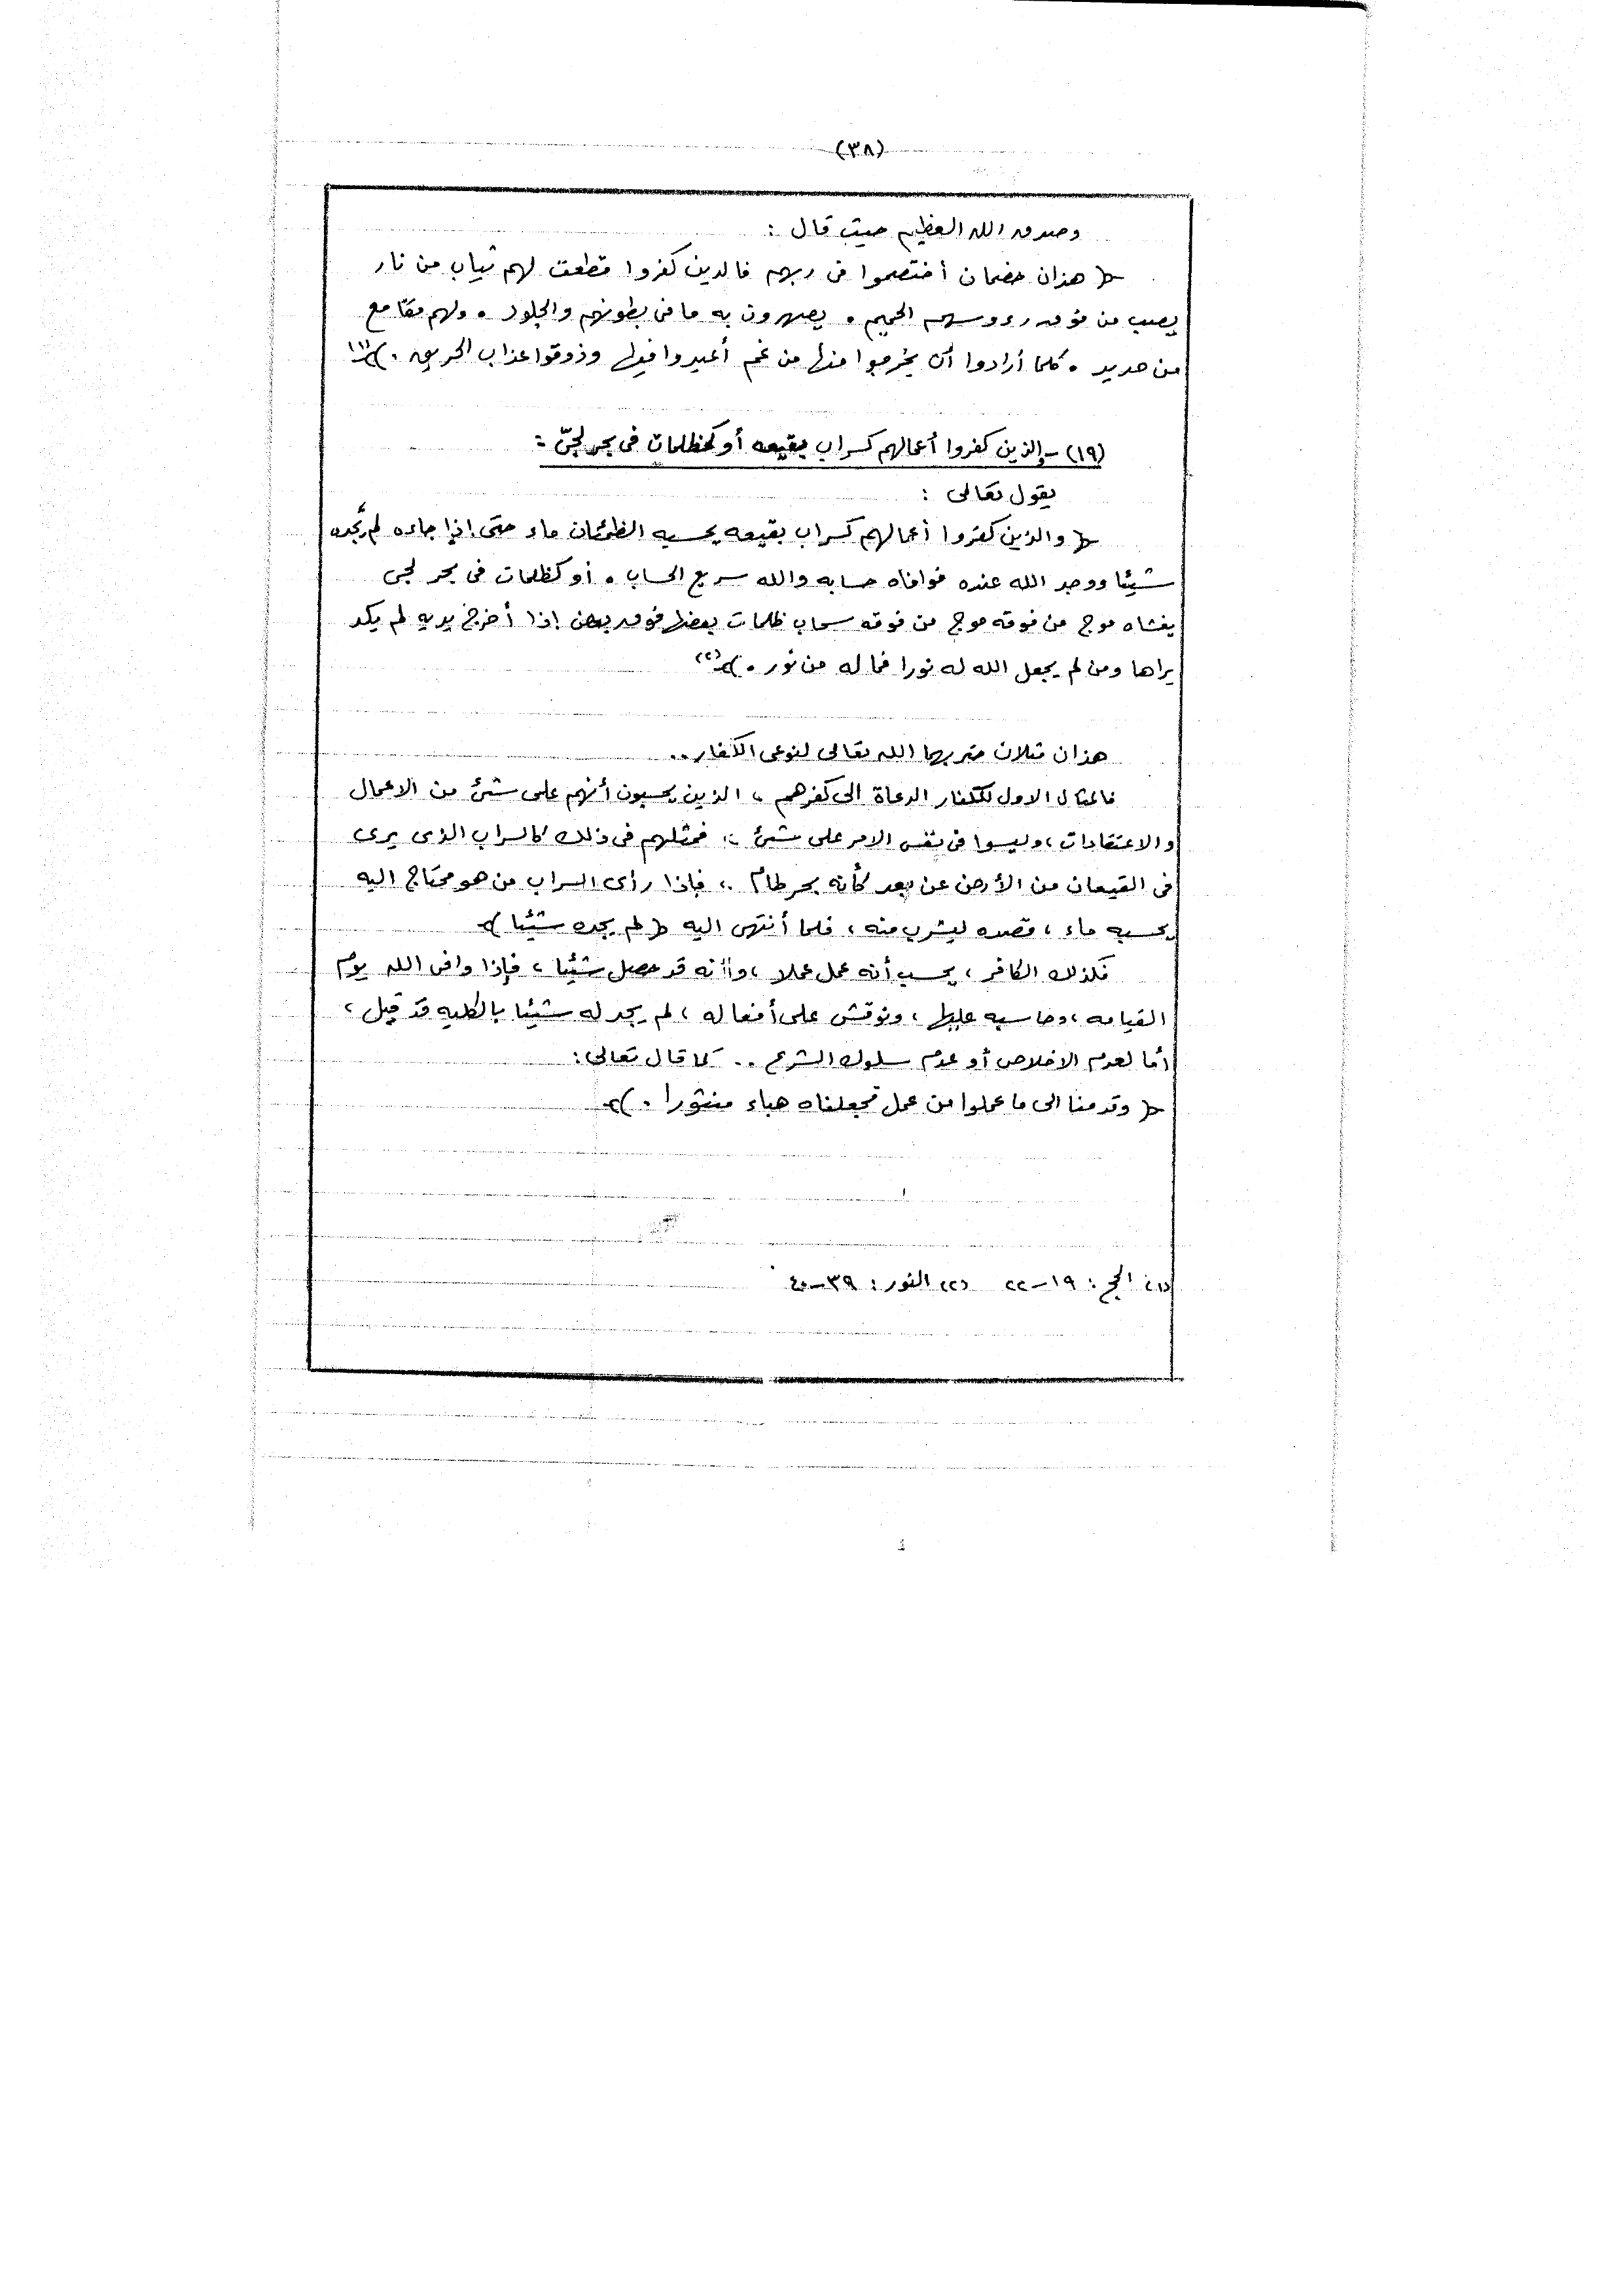 (٣٨)
وصدق الله العظيم حيث قال :
﴿ هذان خصمان أختصموا فى ربهم فالذين كفروا قطعت لهم ثياب من نار
يصب من فوق رءوسهم الحميم . يصهرون به ما فى بطونهم والجلود . ولهم مقامع
من حديد . كلما أرادوا أن يخرجوا منها من غم أعيدوا فيها وذوقوا عذاب الحريق . ﴾(١)
(١٩) - والذين كفروا أعمالهم كسراب بقيعه أو كظلمات فى بحر لجىّ :
يقول تعالى :
﴿ والذين كفروا أعمالهم كسراب بقيعه يحسبه الظمئان ماء حتى إذا جاءه لم يجده
شيئا ووجد الله عنده فوافاه حسابه والله سريع الحساب . أو كظلمات فى بحر لجى
يغشاه موج من فوقه موج من فوقه سحاب ظلمات بعضها فوق بعض إذا أخرج يديه لم يكد
يراها ومن لم يجعل الله له نورا فما له من نور . ﴾(٢)
هذان مثلان ضربهما الله تعالى لنوعى الكفار ..
فالمثال الاول للكفار الدعاة الى كفرهم ، الذين يحسبون أنهم على شئ من الاعمال
والاعتقادات ، وليسوا فى نفس الامر على شئ ، فمثلهم فى ذلك كالسراب الذى يرى
فى القيعان من الأرض عن بعد كأنه بحر طام ، فإذا رأى السراب من هو محتاج اليه
يحسبه ماء ، قصده ليشرب منه ، فلما أنتهى اليه ﴿ لم يجده شيئا ﴾
فكذلك الكافر ، يحسب أنه عمل عملا ، وأنه قد حصل شيئا ، فإذا وافى الله يوم
القيامه ، وحاسبه عليها ، ونوقش على أفعاله ، لم يجد له شيئا بالكليه قد قبل ،
أما لعدم الاخلاص أو عدم سلوك الشرع .. كما قال تعالى :
﴿ وقدمنا الى ما عملوا من عمل فجعلناه هباء منثورا . ﴾
(١) الحج : ١٩ - ٢٢ (٢) النور : ٣٩ - ٤٠